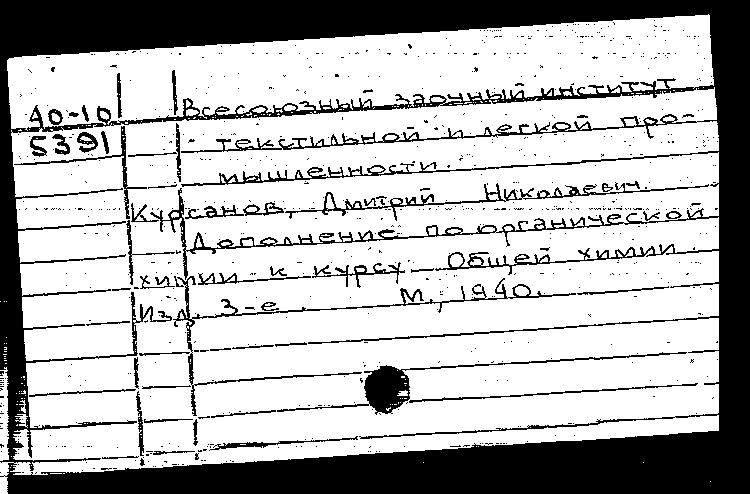 40-10 Всесоюзный заочный институт
5391 текстильной и легкой про-
мышленности.
Курсанов, Дмитрий Николаевич.
Дополнение по органической
химии к курсу Общей химии.
Изд. 3-е. М., 1940.